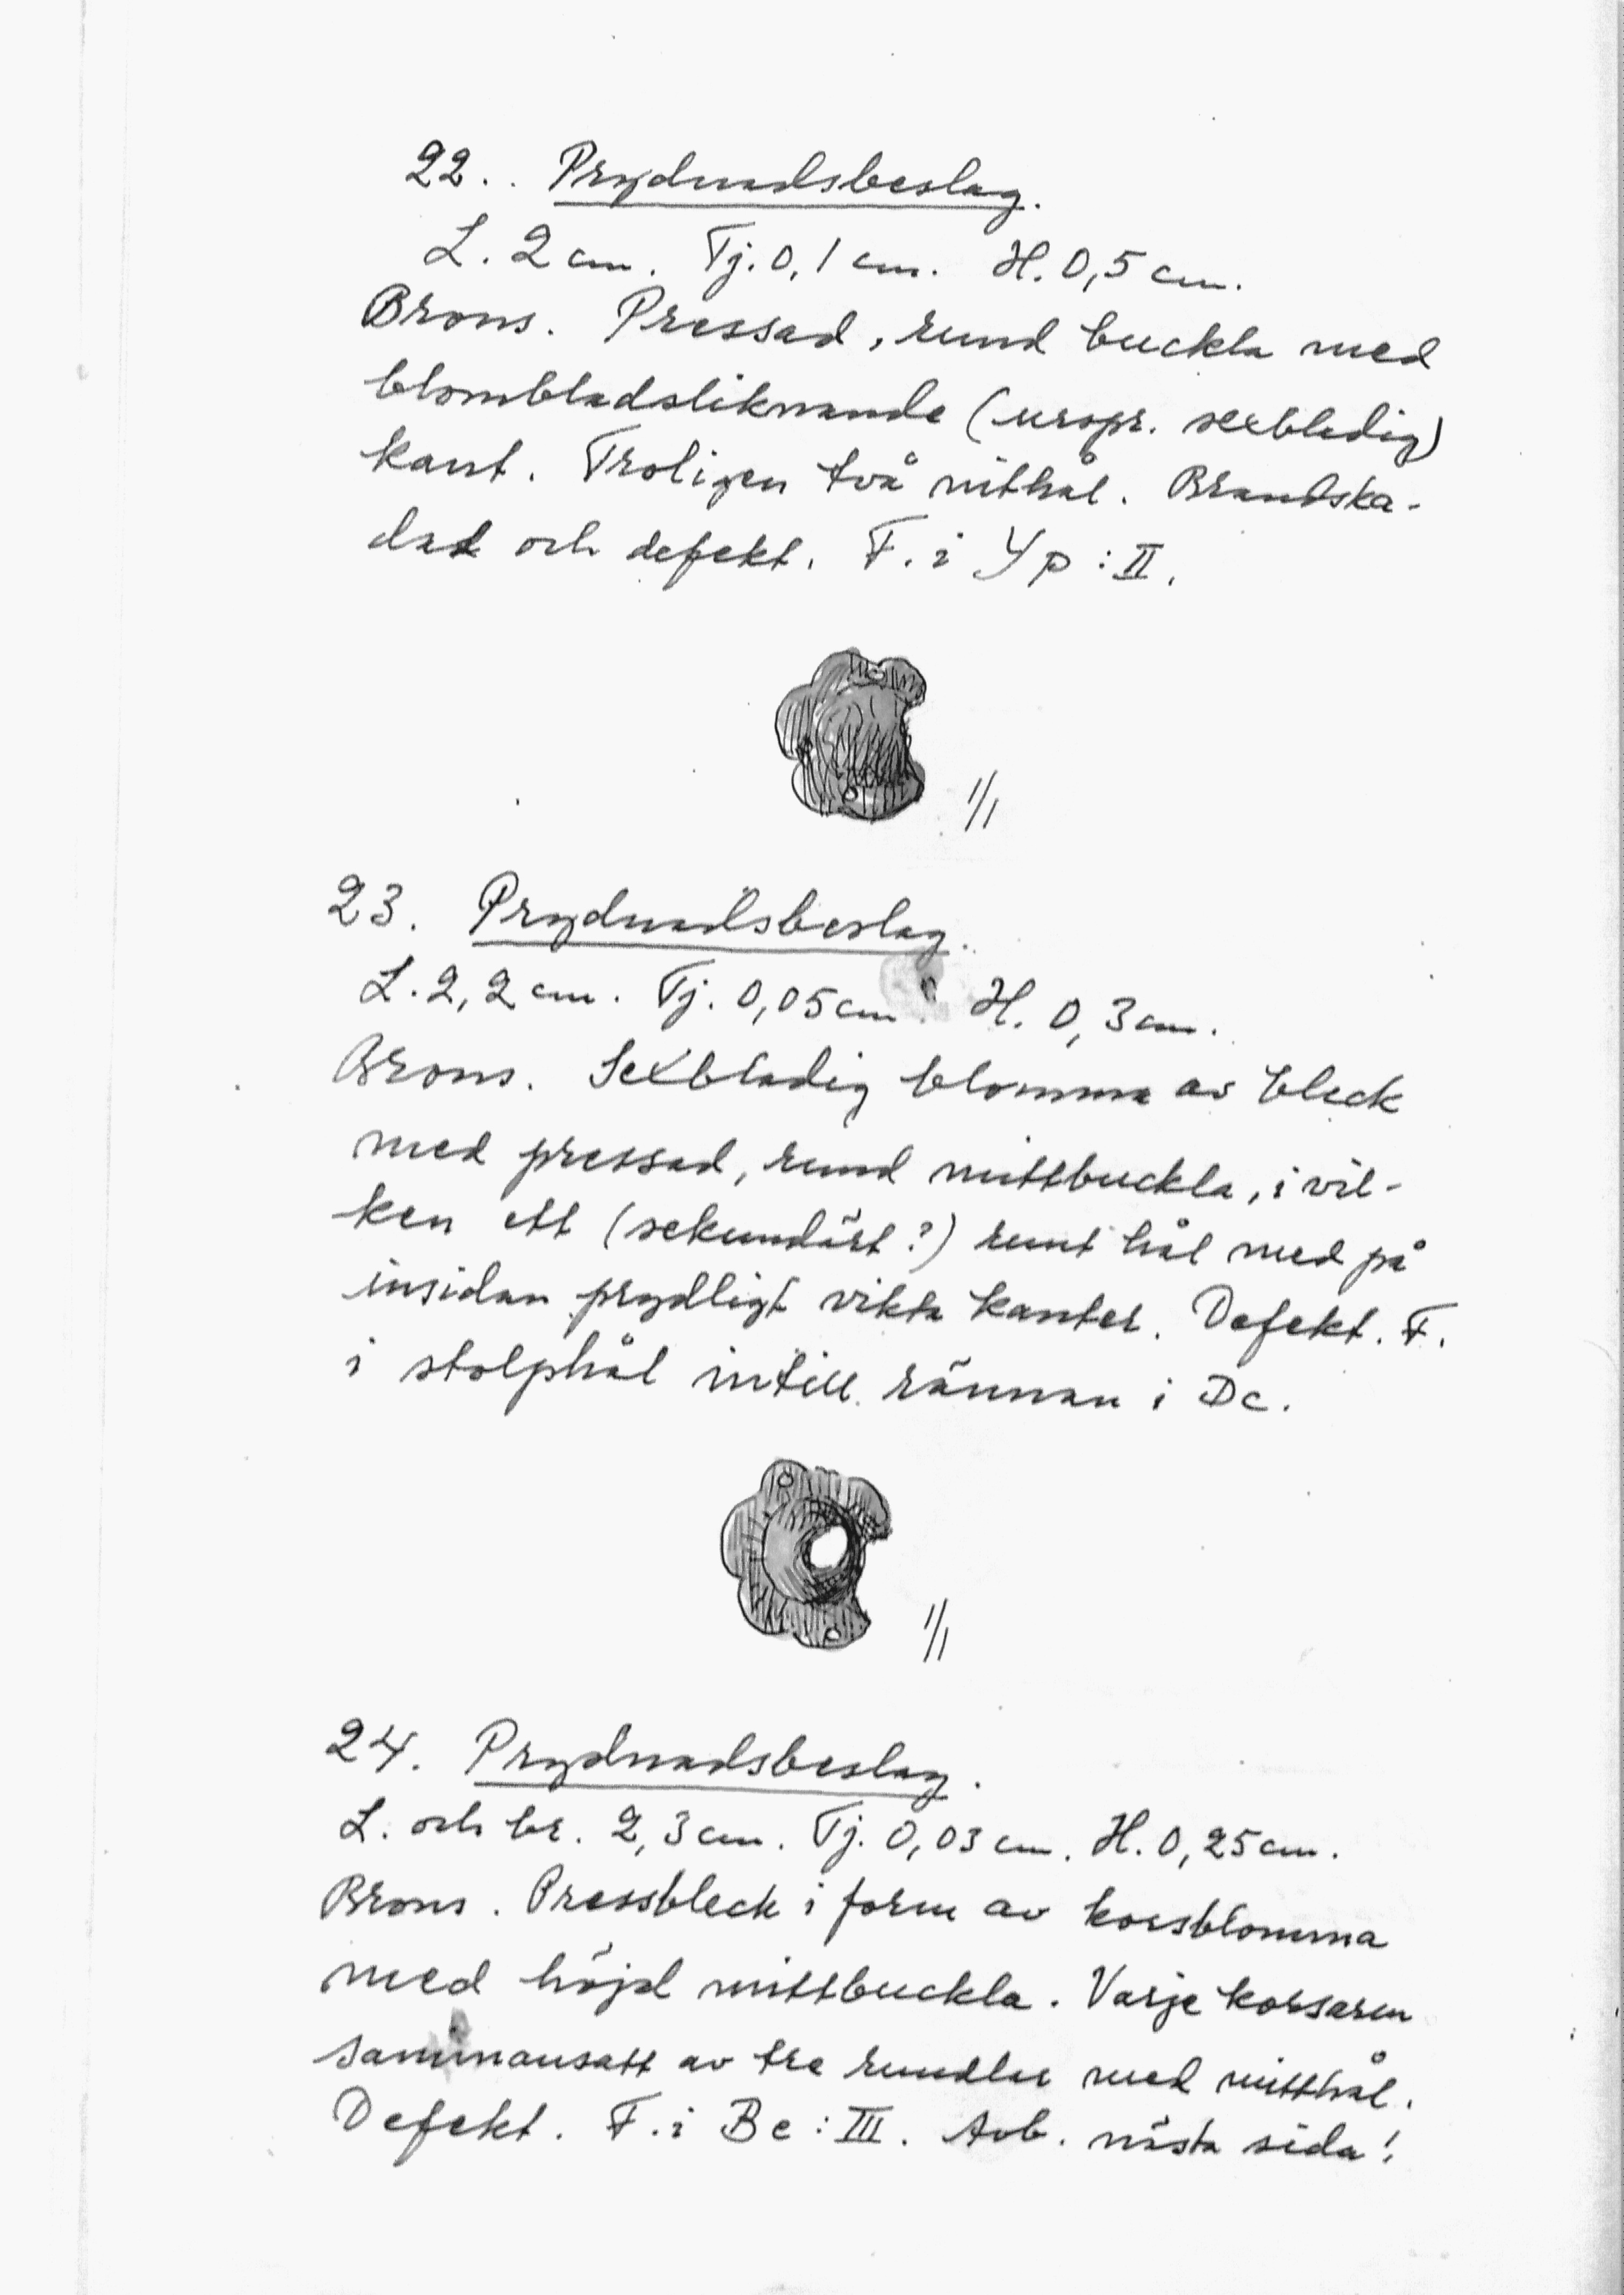 22. . Prydnadsbeslag.
L. 2 cm. Tj. 0,1 cm. H. 0,5 cm.
Brons. Pressad, rund buckla med
blombladsliknande (urspr. sexbladig)
kant. Troligen två nithål. Brandska-
dat och defekt. F. i Yp : II.
1/1
23. Prydnadsbeslag.
L. 2,2 cm. Tj. 0,05 cm. H. 0,3 cm.
Brons. Sexbladig blomma av bleck
med pressad, rund mittbuckla, i vil-
ken ett (sekundärt?) runt hål med på
insidan prydligt vikta kanter. Defekt. F.
i stolphål intill rännan i Dc.
1/1
24. Prydnadsbeslag.
L. och br. 2,3 cm. Tj. 0,03 cm. H. 0,25 cm.
Brons. Pressbleck i form av korsblomma
med höjd mittbuckla. Varje korsarm
sammansatt av tre rundlar med mitthål.
Defekt. F. i Be : III. Avb. nästa sida!